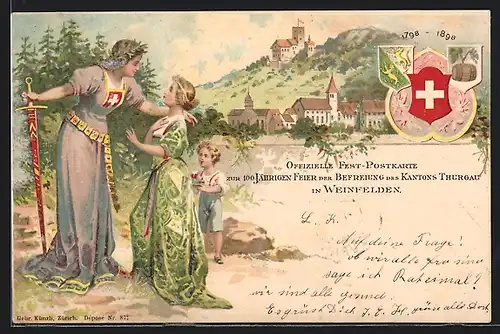 1798 - 1898
OFFIZIELLE FEST-POSTKARTE
ZUR 100 JÄHRIGEN FEIER DER BEFREIUNG DES KANTONS THURGAU
IN WEINFELDEN.
L. K.
Auf deine Frage!
ob wir alle
sage ich Rateimal!
wir sind alle gesund.
Es grüsst Dich
Gebr. Künzli, Zürich. Deposé Nr. 877